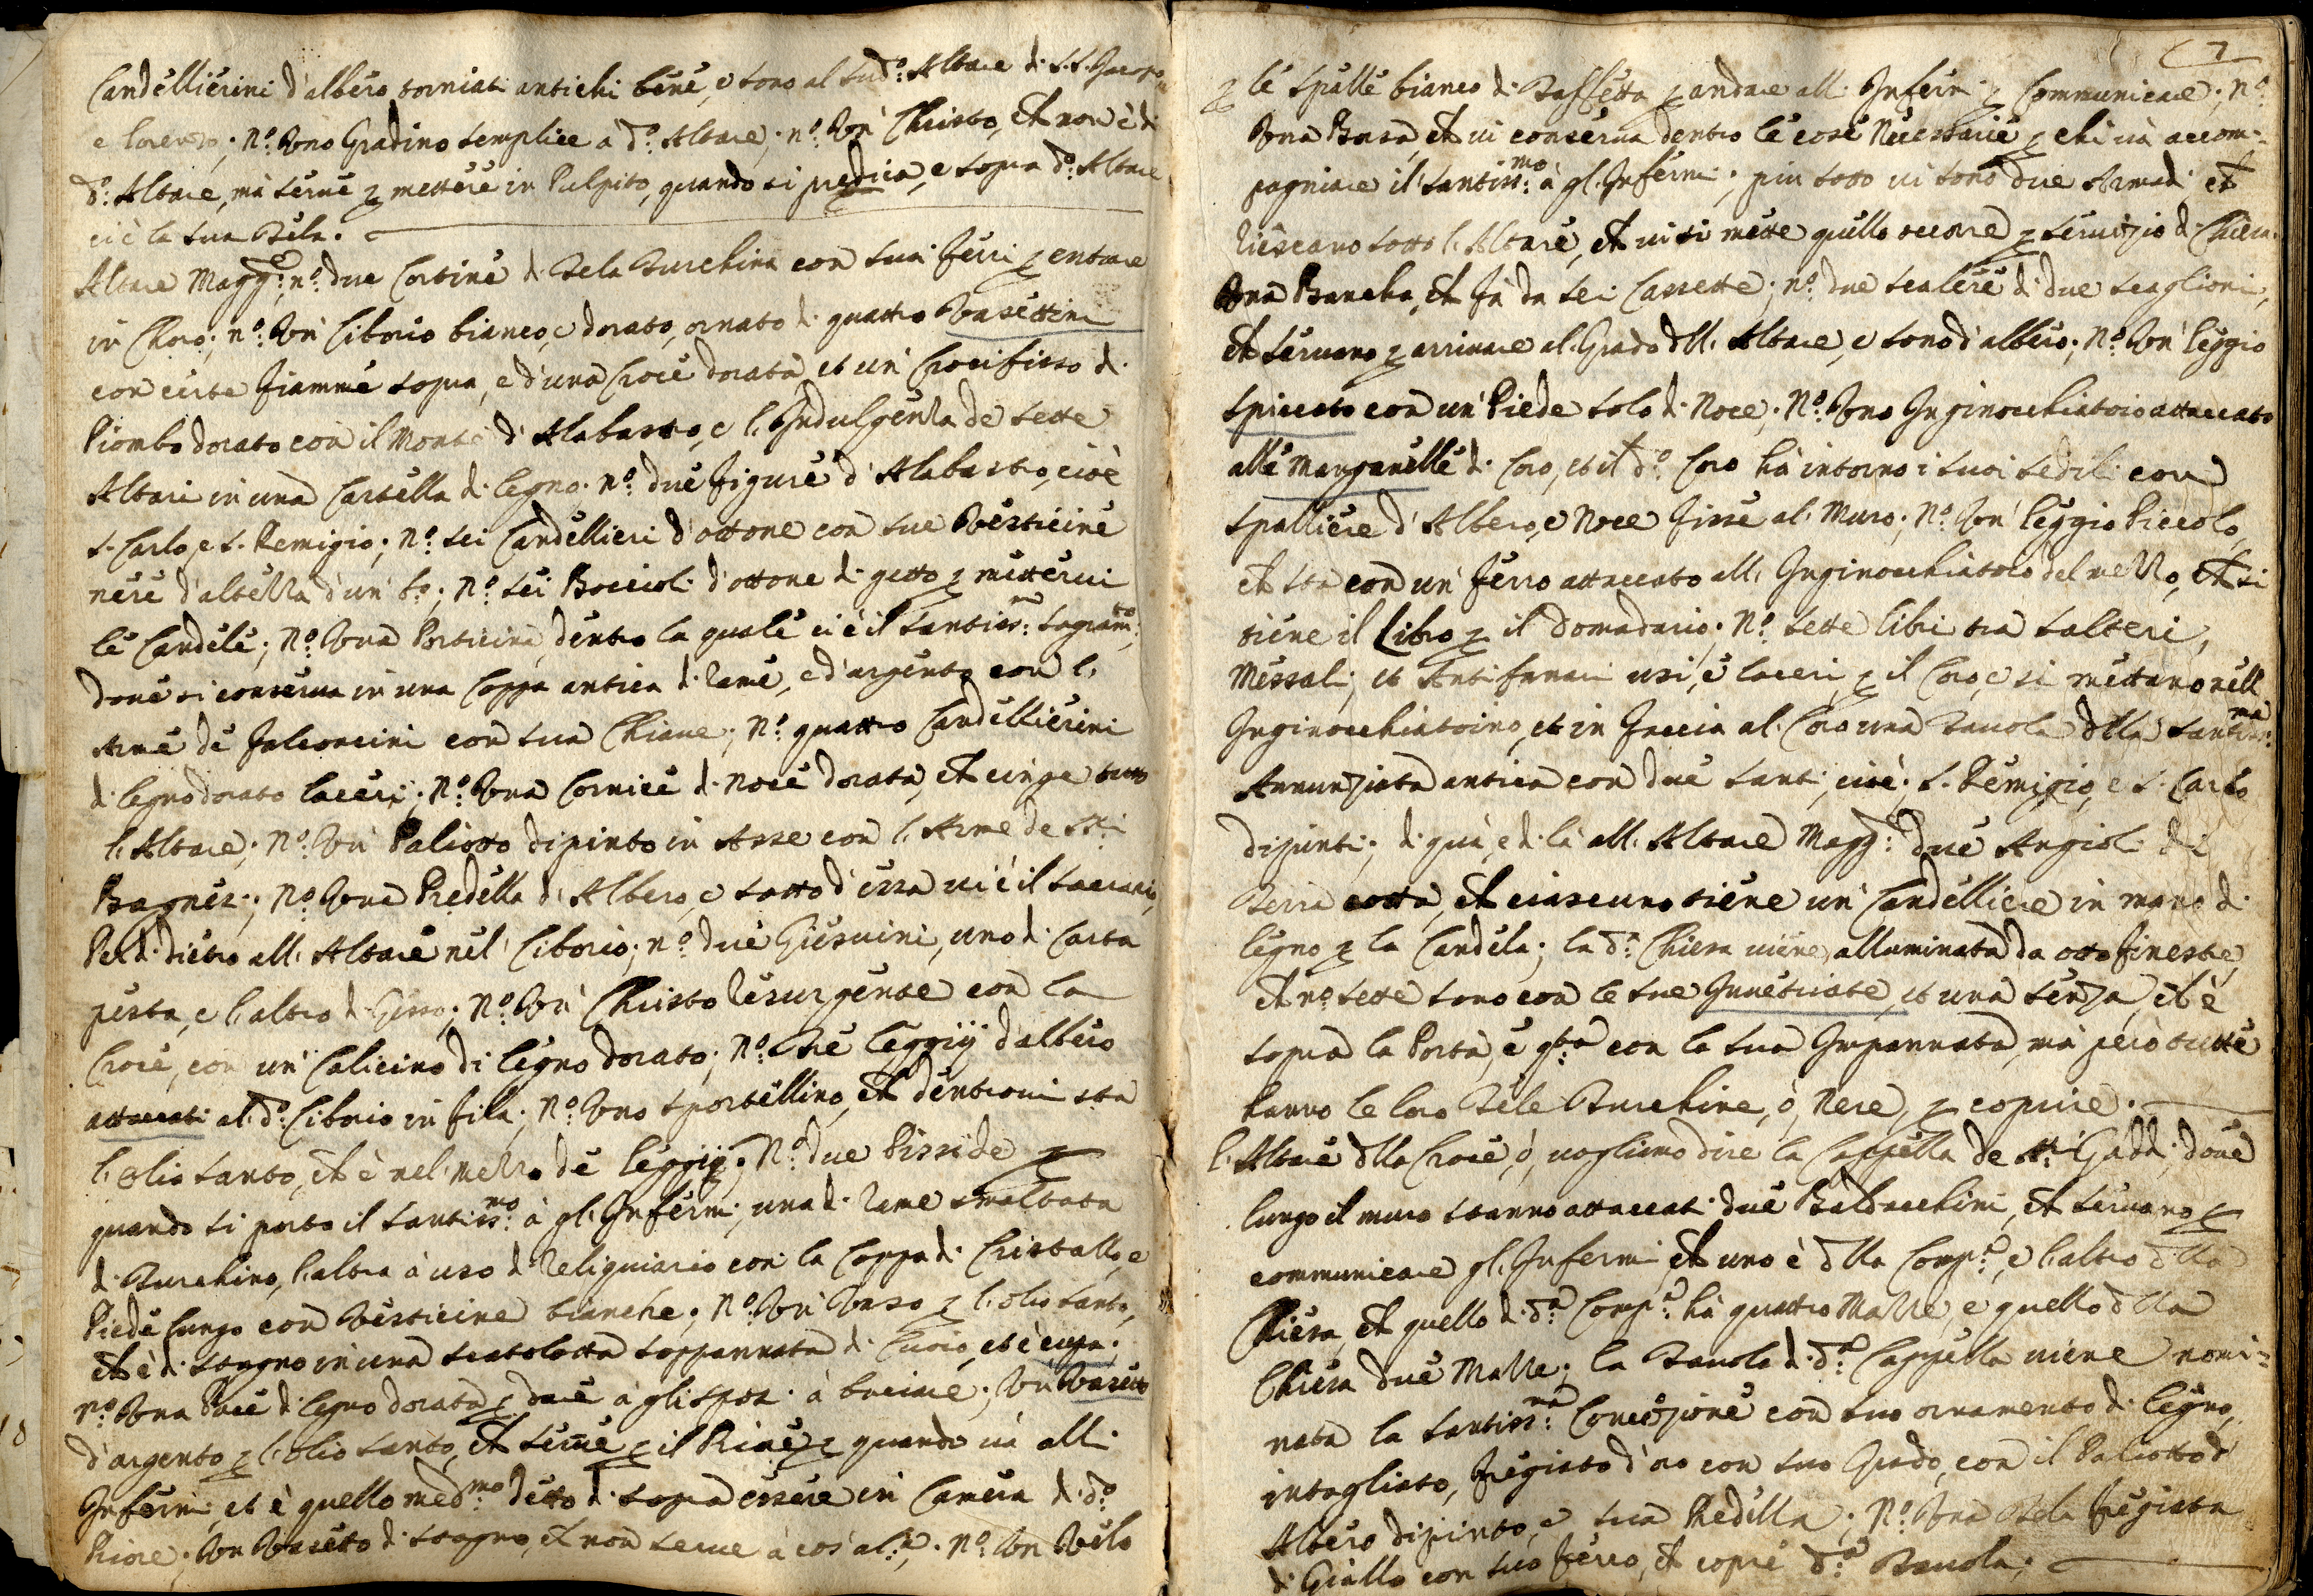 Candellierini d'albero torniati antichi bene, e sono al sud.º Altare di S.S. Jacopo
e Lorenzo; N.º Uno Gradino semplice a d.º Altare; n.º Un' Christo, che non è di
d.º Altare, mà serve p mettere in Pulpito, quando si predica, e sopra d.º Altare
ci è la sua Tela.
Altare Magg.re; n.º due Cortine di Tela Turchina con suoi ferri p entrare
in Choro; n.º Un' Ciborio bianco, e dorato, ornato di quattro Vasettini
con certe fiamme sopra, e d'una Croce dorata, et un' Crocifisso di
Piombo dorato con il Monte d'Alabastro, e l'Indulgenza de sette
Altari in una Cartella di legno. n.º due figure d'Alabastro, cioè
S. Carlo, e S. Remigio; N.º sei Candellieri d'ottone con sue Vesticine
nere d'altezza d'un b.º; N.º sei Boccioli d'ottone di getto p mettervi
le Candele; N.º Una Porticina, dentro la quale ci è il Santiss.mo Sagram.to,
dove si conserva in una Coppa antica di rame, e d'argento con l'
Arme de Falconcini con sua Chiave; N.º quattro Candellierini
di legno dorato laceri; N.º Una Cornice di noce dorata, che cinge tutto
l'Altare; N.º Un' Paliotto dipinto in Asse con l'Arme de SS.ri
Bagnesi; N.º Una Predella d'Albero, e sotto d'essa vi è il Sacrario,
Per di dietro all'Altare nel Ciborio; n.º due Giesuini, uno di Carta
pesta, e l'altro di Gesso; N.º Un' Christo resurgente con la
Croce, con un' Calicino di legno dorato; N.º Tre leggij d'albero
attaccati al d.º Ciborio in fila; N.º Uno sportellino, che dentrovi sta
l'olio santo, che è nel mezzo de leggij; N.º due Pisside p
quando si porta il Santiss.mo à gl'Infermi, una di rame smaltata
di Turchino, l'altra à uso di reliquiario con la Coppa di Cristallo, e
Piede lungo con Vesticine bianche; N.º Un' Vaso p l'olio santo,
che è di stagno in una scatoletta soppannata di Cuoio, et è cupa;
N.º Una Pace di legno dorata p dare à gli sposi à baciare; Un' Vasetto
d'argento p l'olio santo, che serve p il Priore p quando và all'
Infermi, et è quello med.mo detto di sopra essere in Camera di d.º
Priore. Un Vasetto di stagno, che non serve à cos' al.na; N.º Un Velo
7
p le spalle bianco di Taffetta p andare all'Infermi p Communicare; N.º
Una Borsa, che vi conserva dentro le cose Necessarie p chi và accom=
pagniare il Santiss.mo à gl'Infermi; più sotto vi sono due Armadi che
riescano sotto l'Altare, che vi si mette quello occorre p servizio di Chiesa.
Una Bancha, che fà da sei Cassette; n.º due scalere di due scaglioni,
che servano p arrivare al Grado dll'Altare, e sono d'albero; N.º Un' leggio
spiccato con un' Piede solo di Noce; N.º Uno Inginocchiatoio attaccato
alle manganelle di Coro, et il d.º Coro hà intorno i suoi sedili con
spalliere d'Albero, e Noce fisse al Muro; N.º Un' leggio Piccolo,
che sta con un' ferro attaccato all'Inginocchiatoio del mezzo, che si
tiene il Libro p il Domadario; N.º sette libri tra salteri,
Messali, et Antifanari usi, e laceri, p il Coro, e si mettano nell
Inginocchiatoino, et in faccia al Coro una Tavola dlla Santiss.ma
Annunziata antica con due santi, cioè; S. Remigio, e S. Carlo
dipinti; di quà, e di là all'Altare Magg.re due Angioli di
Terra cotta, che ciascuno tiene un' Candelliere in mano di
legno p la Candela; la d.ª Chiesa viene alluminata da otto finestre,
che n.º sette sono con le sue Invetriate, et una senza, che è
sopra la Porta, e q.sta con la sua Impannata, mà però tutte
hanno le loro Tele Turchine, ò Nere, p coprire.
L'Altare dlla Croce, ò, vogliamo dire la Cappella de SS.ri Gaddi, dove
lungo il muro stanno attaccati due Baldacchini, che servano p
communicare gl'Infermi, che uno è dlla Comp.ª, e l'altro dlla
Chiesa, che quello di d.ª Comp.ª hà quattro Mazze, e quello dlla
Chiesa due Mazze; la Tavola di d.ª Cappella viene nomi=
nata la Santiss.ma Concezzione con suo ornamento di legno,
intagliato, fregiato d'oro con suo Grado, con il Paliotto d'
Albero dipinto, e sua Predella; N.º Una Tela fregiata
di Giallo con suo ferro, che copre d.ª Tavola;